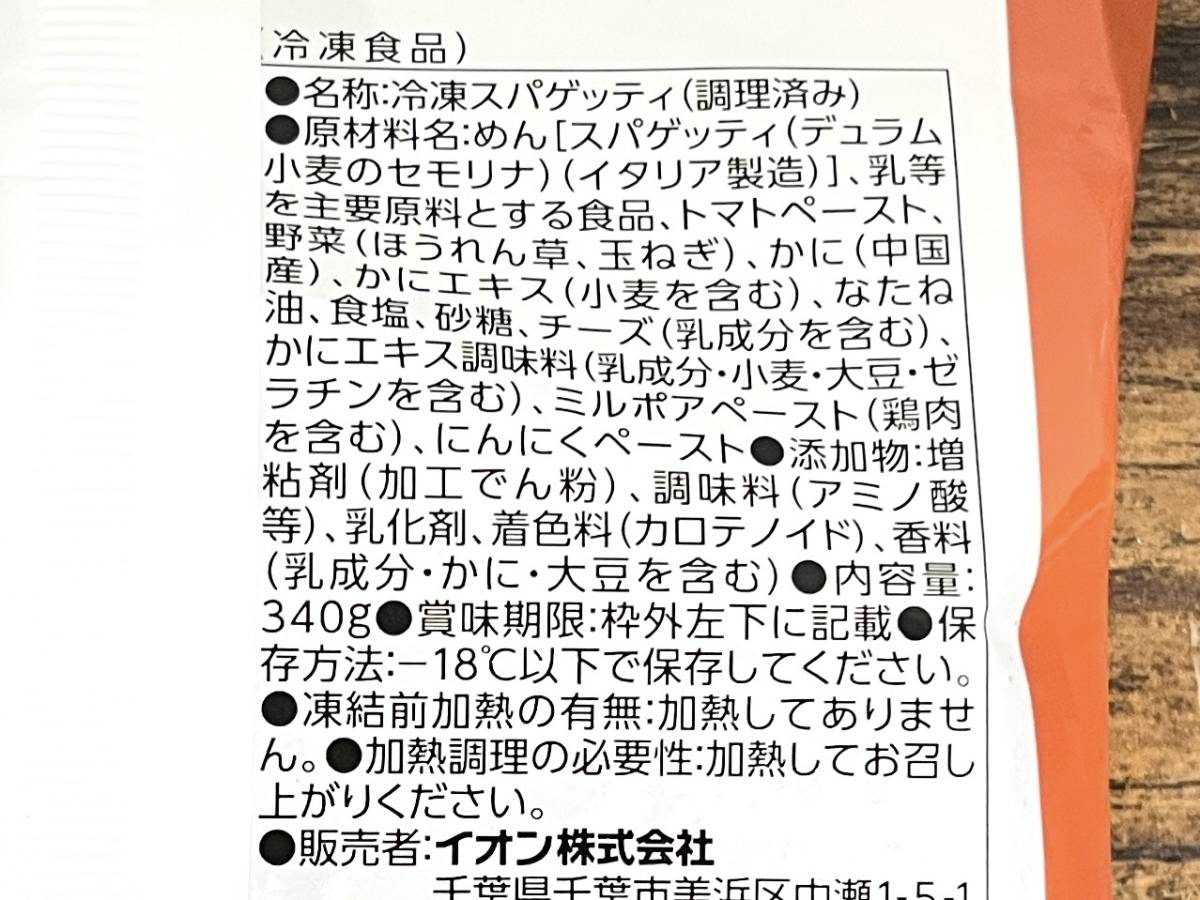 (冷凍食品)
●名称:冷凍スパゲッティ(調理済み)
●原材料名:めん[スパゲッティ(デュラム
小麦のセモリナ)(イタリア製造)]、乳等
を主要原料とする食品、トマトペースト、
野菜(ほうれん草、玉ねぎ)、かに(中国
産)、かにエキス(小麦を含む)、なたね
油、食塩、砂糖、チーズ(乳成分を含む)、
かにエキス調味料(乳成分・小麦・大豆・ゼ
ラチンを含む)、ミルポアペースト(鶏肉
を含む)、にんにくペースト●添加物:増
粘剤(加工でん粉)、調味料(アミノ酸
等)、乳化剤、着色料(カロテノイド)、香料
(乳成分・かに・大豆を含む)●内容量:
340g●賞味期限:枠外左下に記載●保
存方法:−18℃以下で保存してください。
●凍結前加熱の有無:加熱してありませ
ん。●加熱調理の必要性:加熱してお召し
上がりください。
●販売者:イオン株式会社
千葉県千葉市美浜区中瀬1-5-1